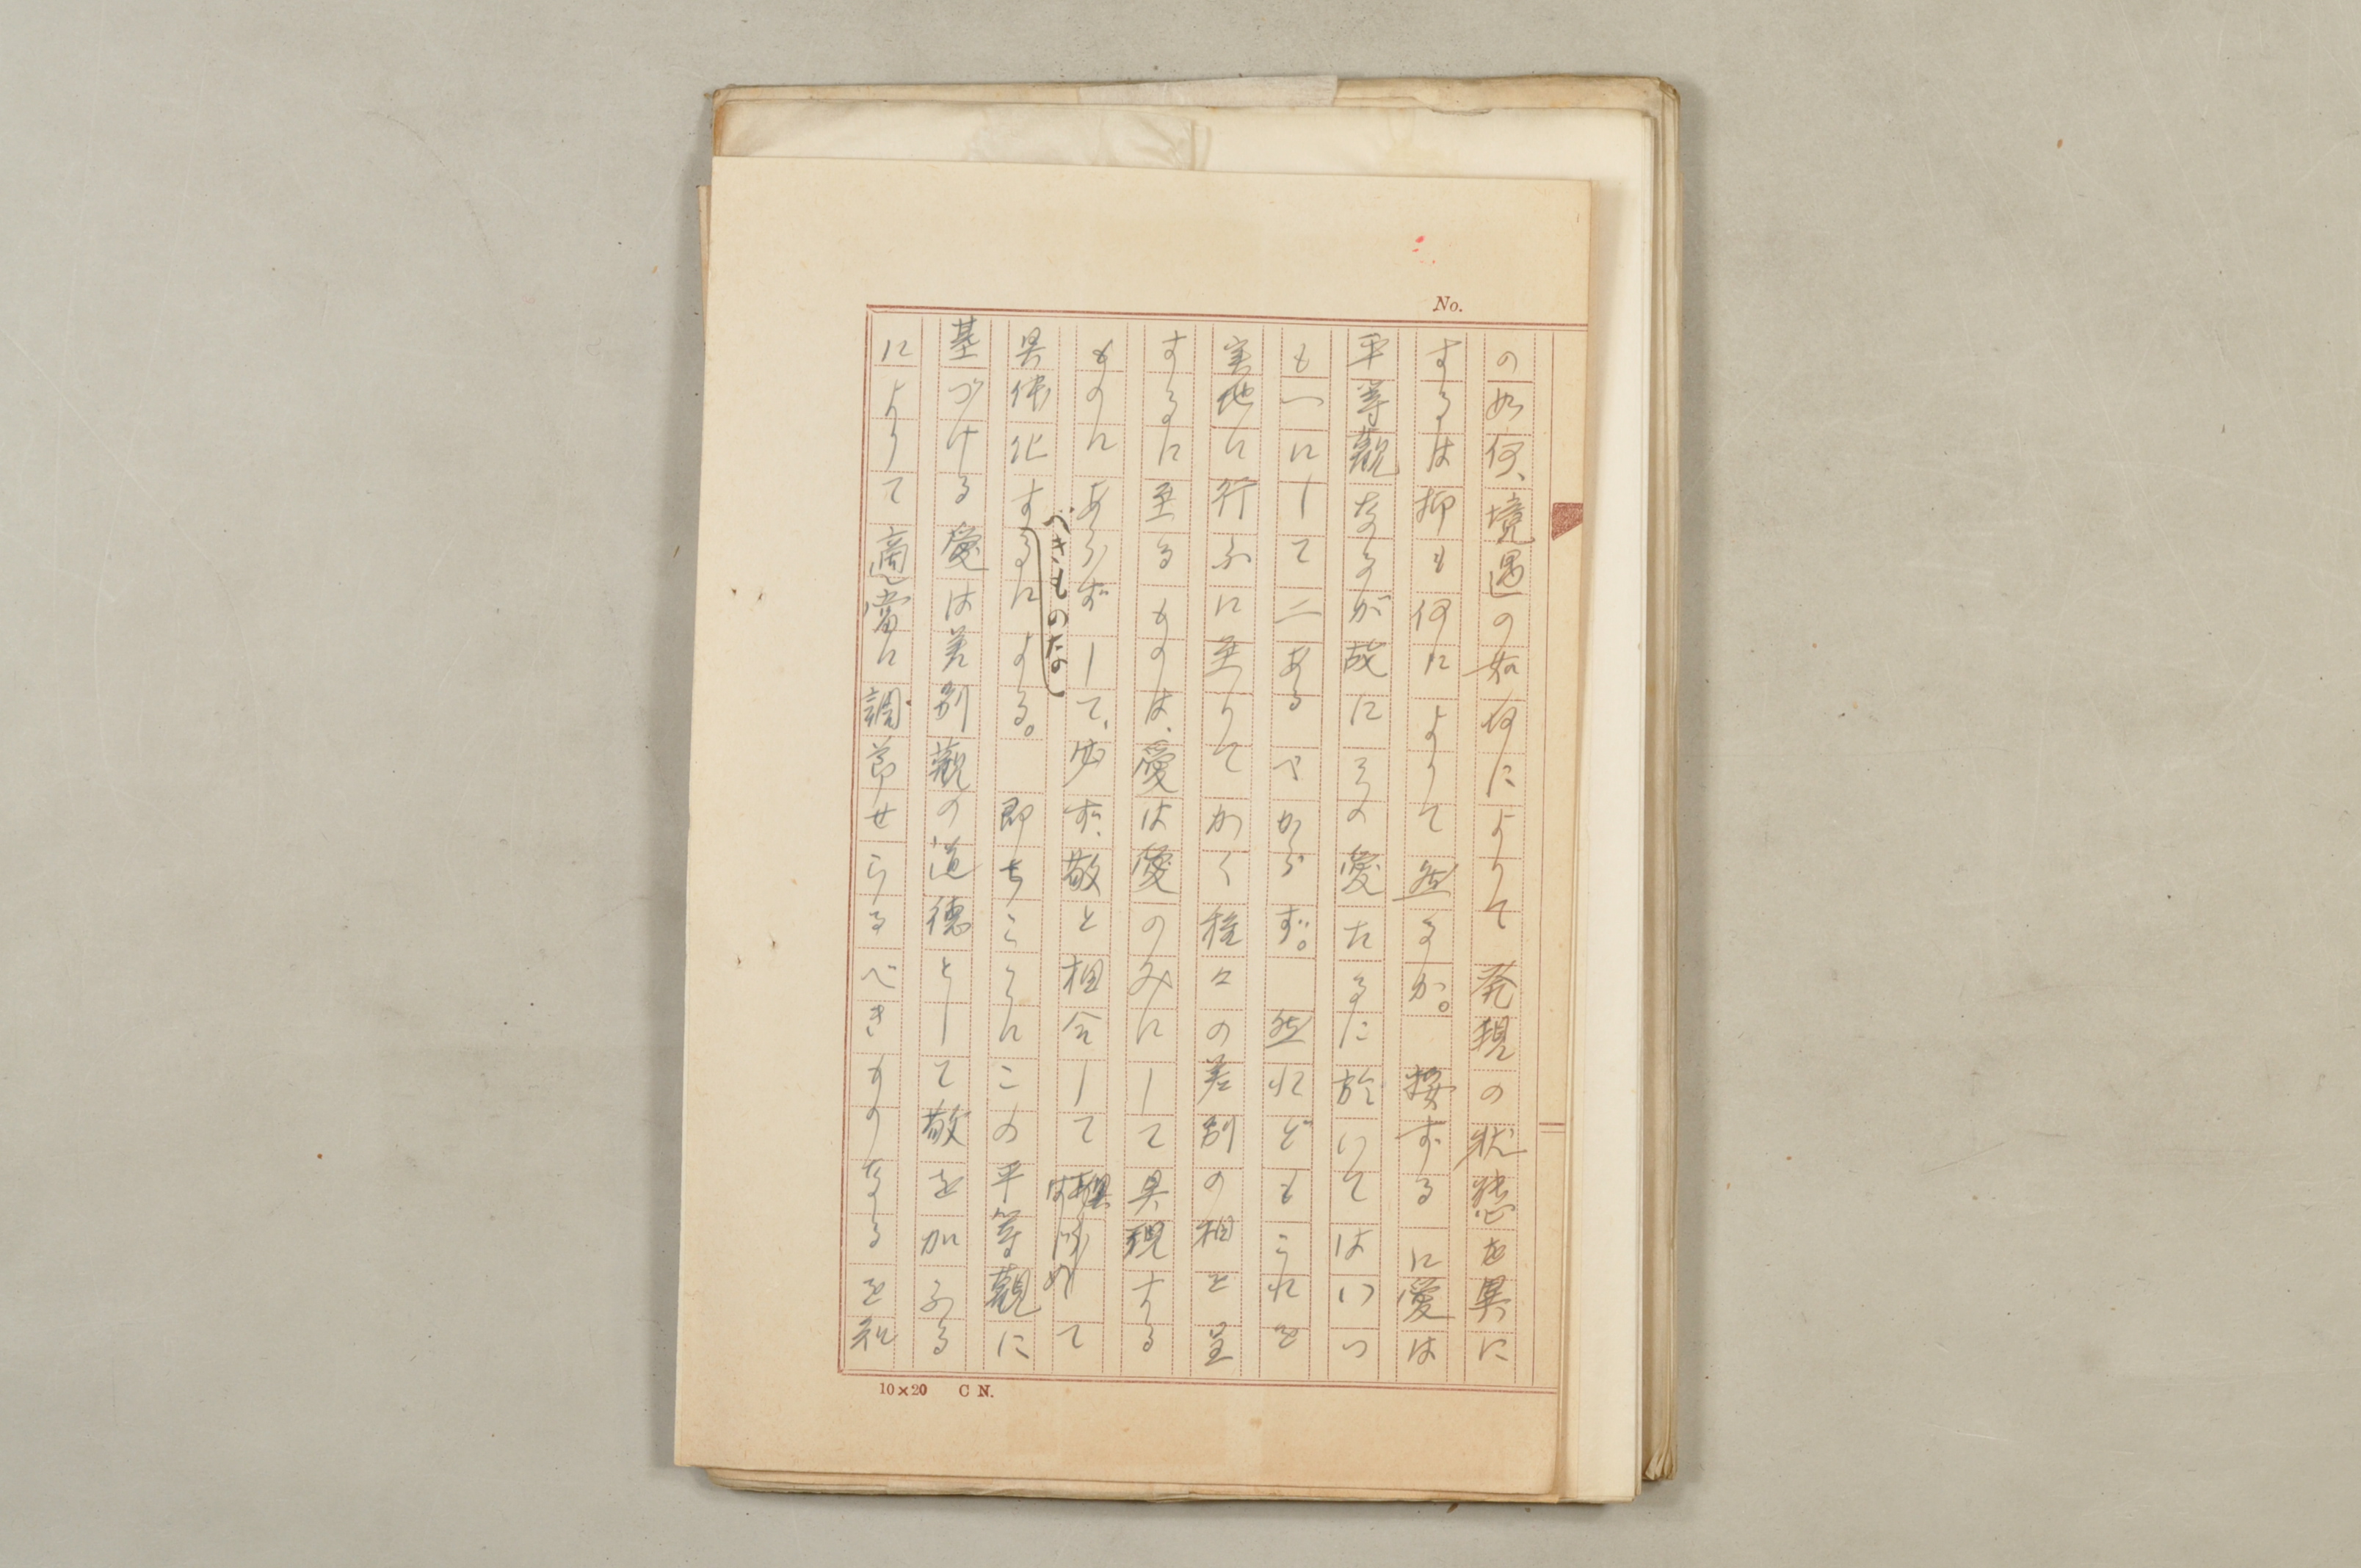 No.
の如何、境遇の如何によりて発現の状態を異に
するは抑も何によりて然るか。 按ずるに愛は
平等觀なるが故にその愛たるに於いてはいつ
も一にして二あるべからず。 然れどもこれを
実地に行ふに至りてかく種々の差別の相を呈
するに至るものは、愛は愛のみにして具現する
ものにあらずして、必ず、敬と相合して はじめて
具体化するによる。 即ちこゝにこの平等觀に
べきものなし
基づける愛は差別觀の道徳として敬を加ふる
によりて適當に調節せらるべきものなるを知
10×20 C N.